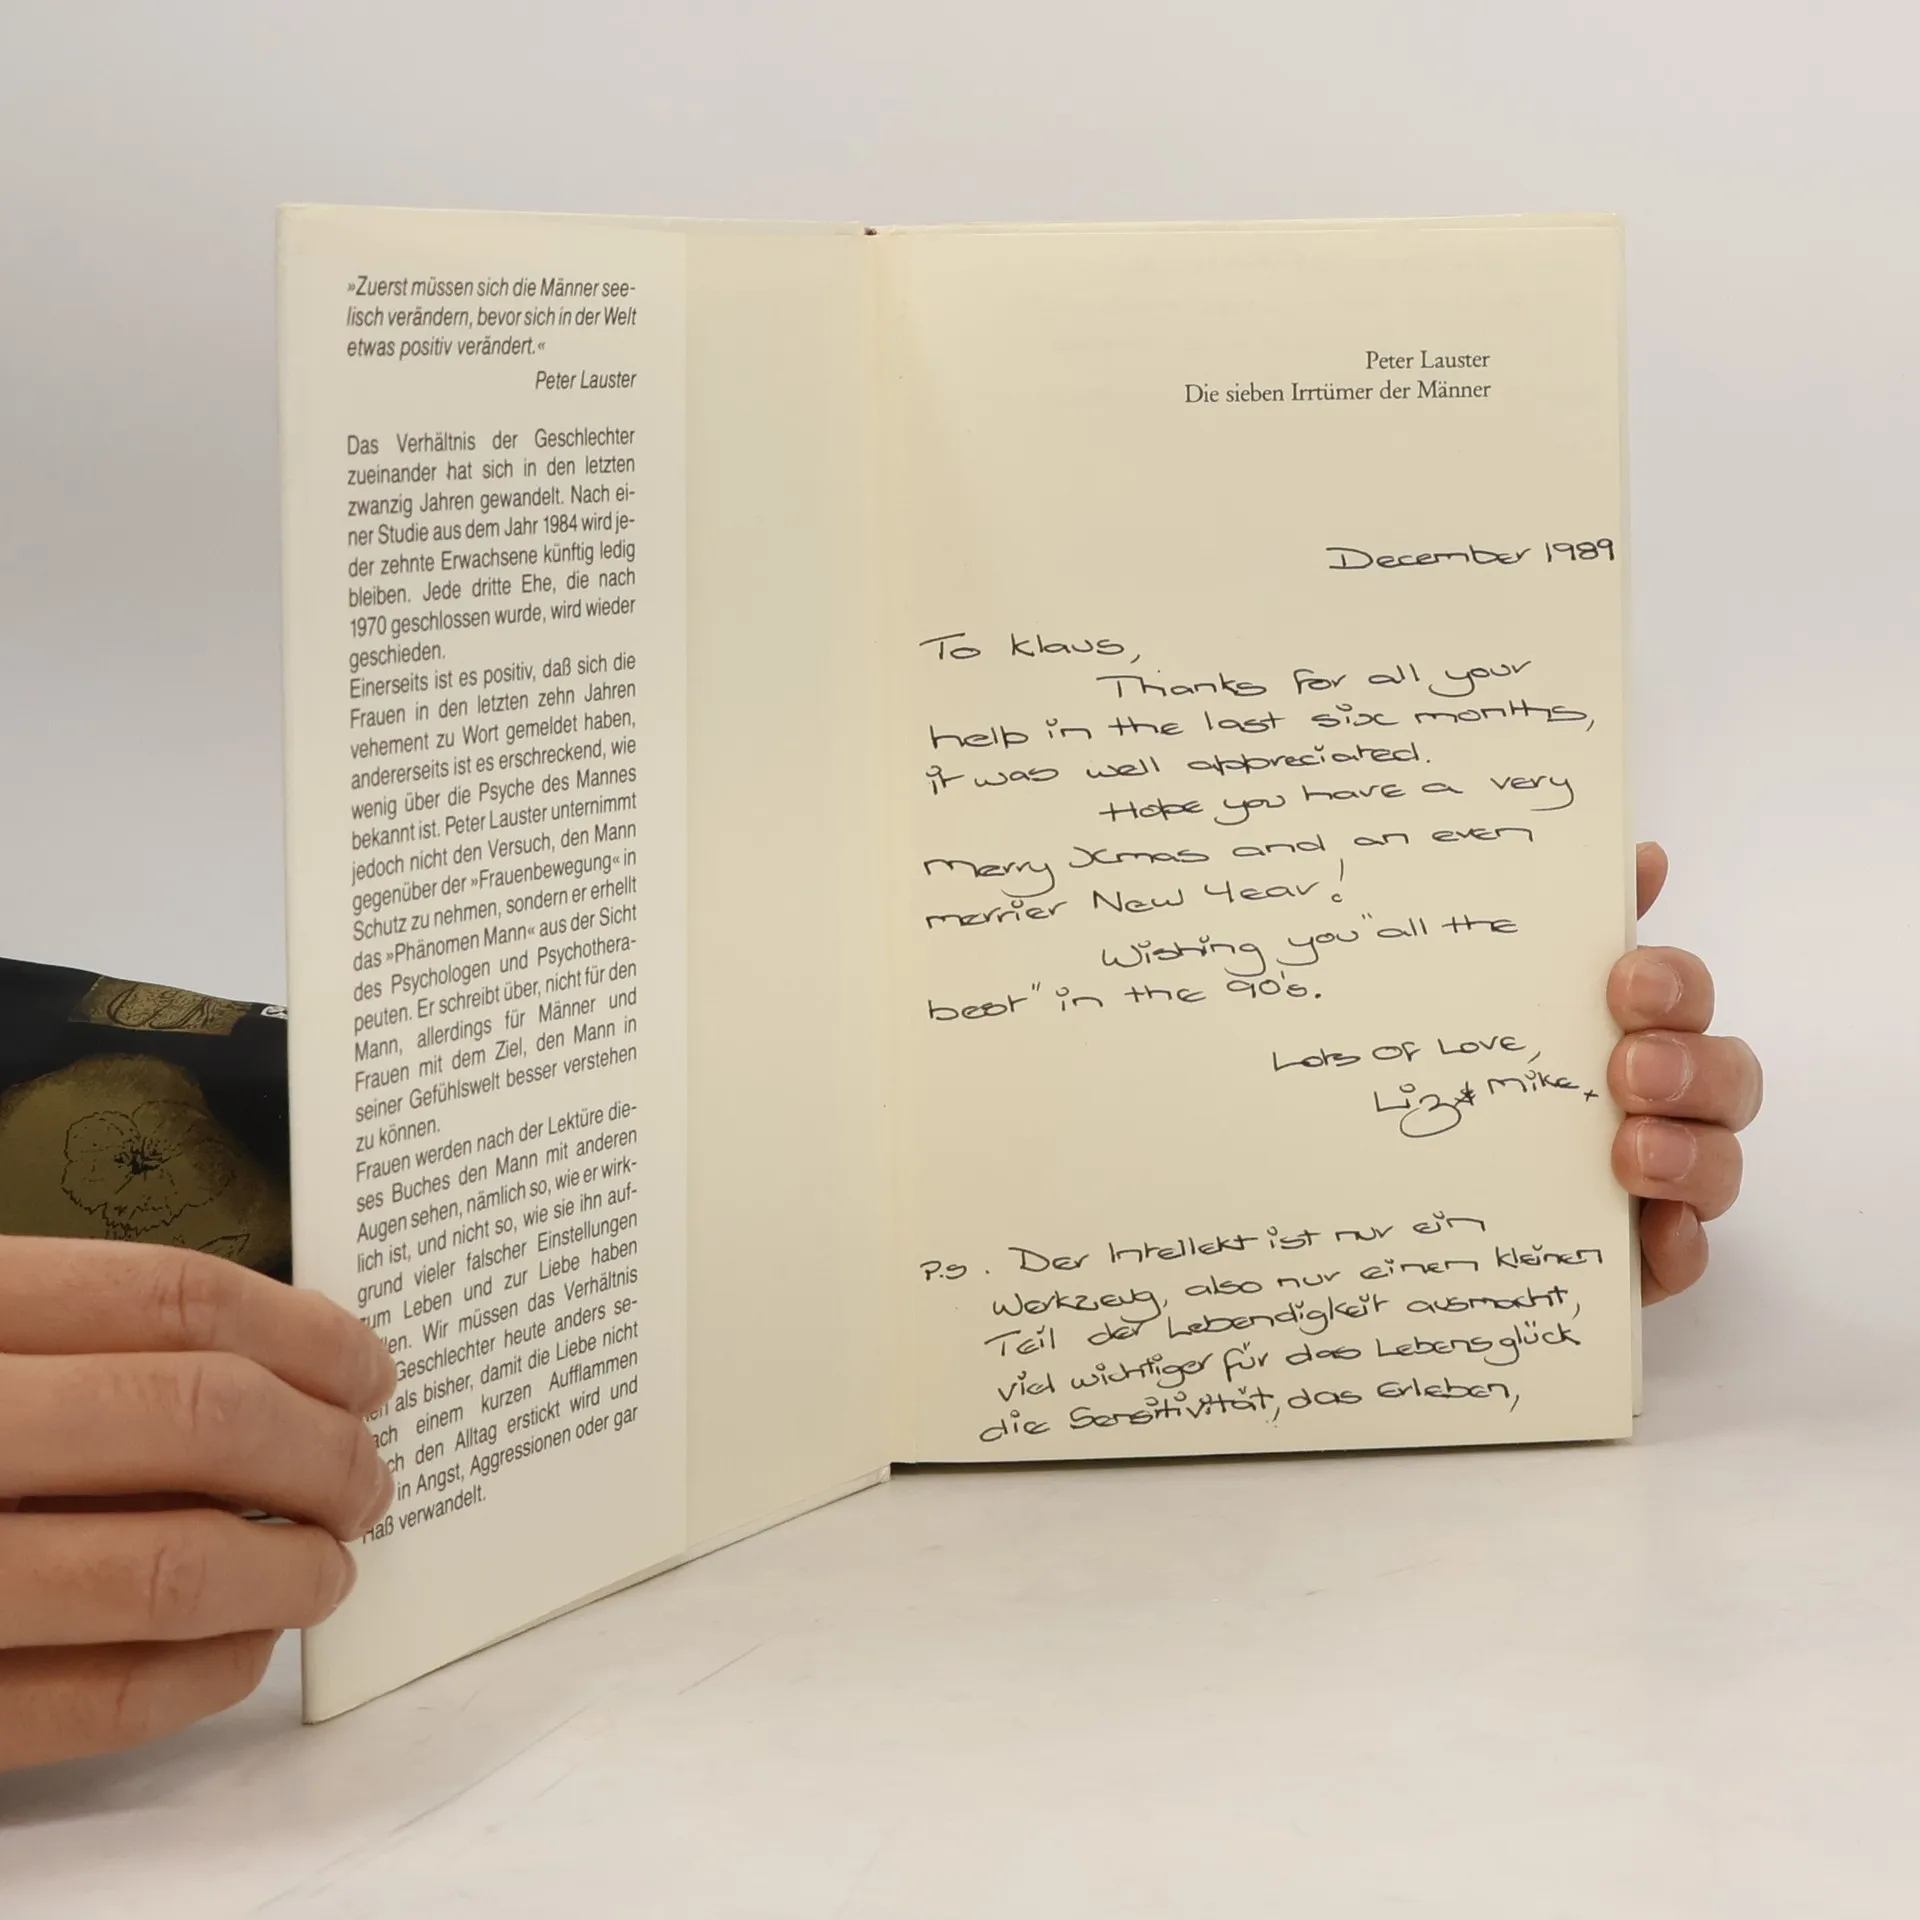 »Zuerst müssen sich die Männer see-
lisch verändern, bevor sich in der Welt
etwas positiv verändert.«
Peter Lauster
Das Verhältnis der Geschlechter
zueinander hat sich in den letzten
zwanzig Jahren gewandelt. Nach ei-
ner Studie aus dem Jahr 1984 wird je-
der zehnte Erwachsene künftig ledig
bleiben. Jede dritte Ehe, die nach
1970 geschlossen wurde, wird wieder
geschieden.
Einerseits ist es positiv, daß sich die
Frauen in den letzten zehn Jahren
vehement zu Wort gemeldet haben,
andererseits ist es erschreckend, wie
wenig über die Psyche des Mannes
bekannt ist. Peter Lauster unternimmt
jedoch nicht den Versuch, den Mann
gegenüber der »Frauenbewegung« in
Schutz zu nehmen, sondern er erhellt
das »Phänomen Mann« aus der Sicht
des Psychologen und Psychothera-
peuten. Er schreibt über, nicht für den
Mann, allerdings für Männer und
Frauen mit dem Ziel, den Mann in
seiner Gefühlswelt besser verstehen
zu können.
Frauen werden nach der Lektüre die-
ses Buches den Mann mit anderen
Augen sehen, nämlich so, wie er wirk-
lich ist, und nicht so, wie sie ihn auf-
grund vieler falscher Einstellungen
zum Leben und zur Liebe haben
Wir müssen das Verhältnis
Geschlechter heute anders se-
als bisher, damit die Liebe nicht
einem kurzen Aufflammen
den Alltag erstickt wird und
in Angst, Aggressionen oder gar
Haß verwandelt.
Peter Lauster
Die sieben Irrtümer der Männer
December 1989
To Klaus,
Thanks for all your
help in the last six months,
it was well appreciated.
Hope you have a very
merry Xmas and an even
merrier New Year!
Wishing you "all the
best" in the 90's.
Lots of Love,
Liz & Mike. x
P.S. Der Intellekt ist nur ein
Werkzeug, also nur einem kleinen
Teil der Lebendigkeit ausmacht,
viel wichtiger für das Lebensglück
die Sensitivität, das Erleben,